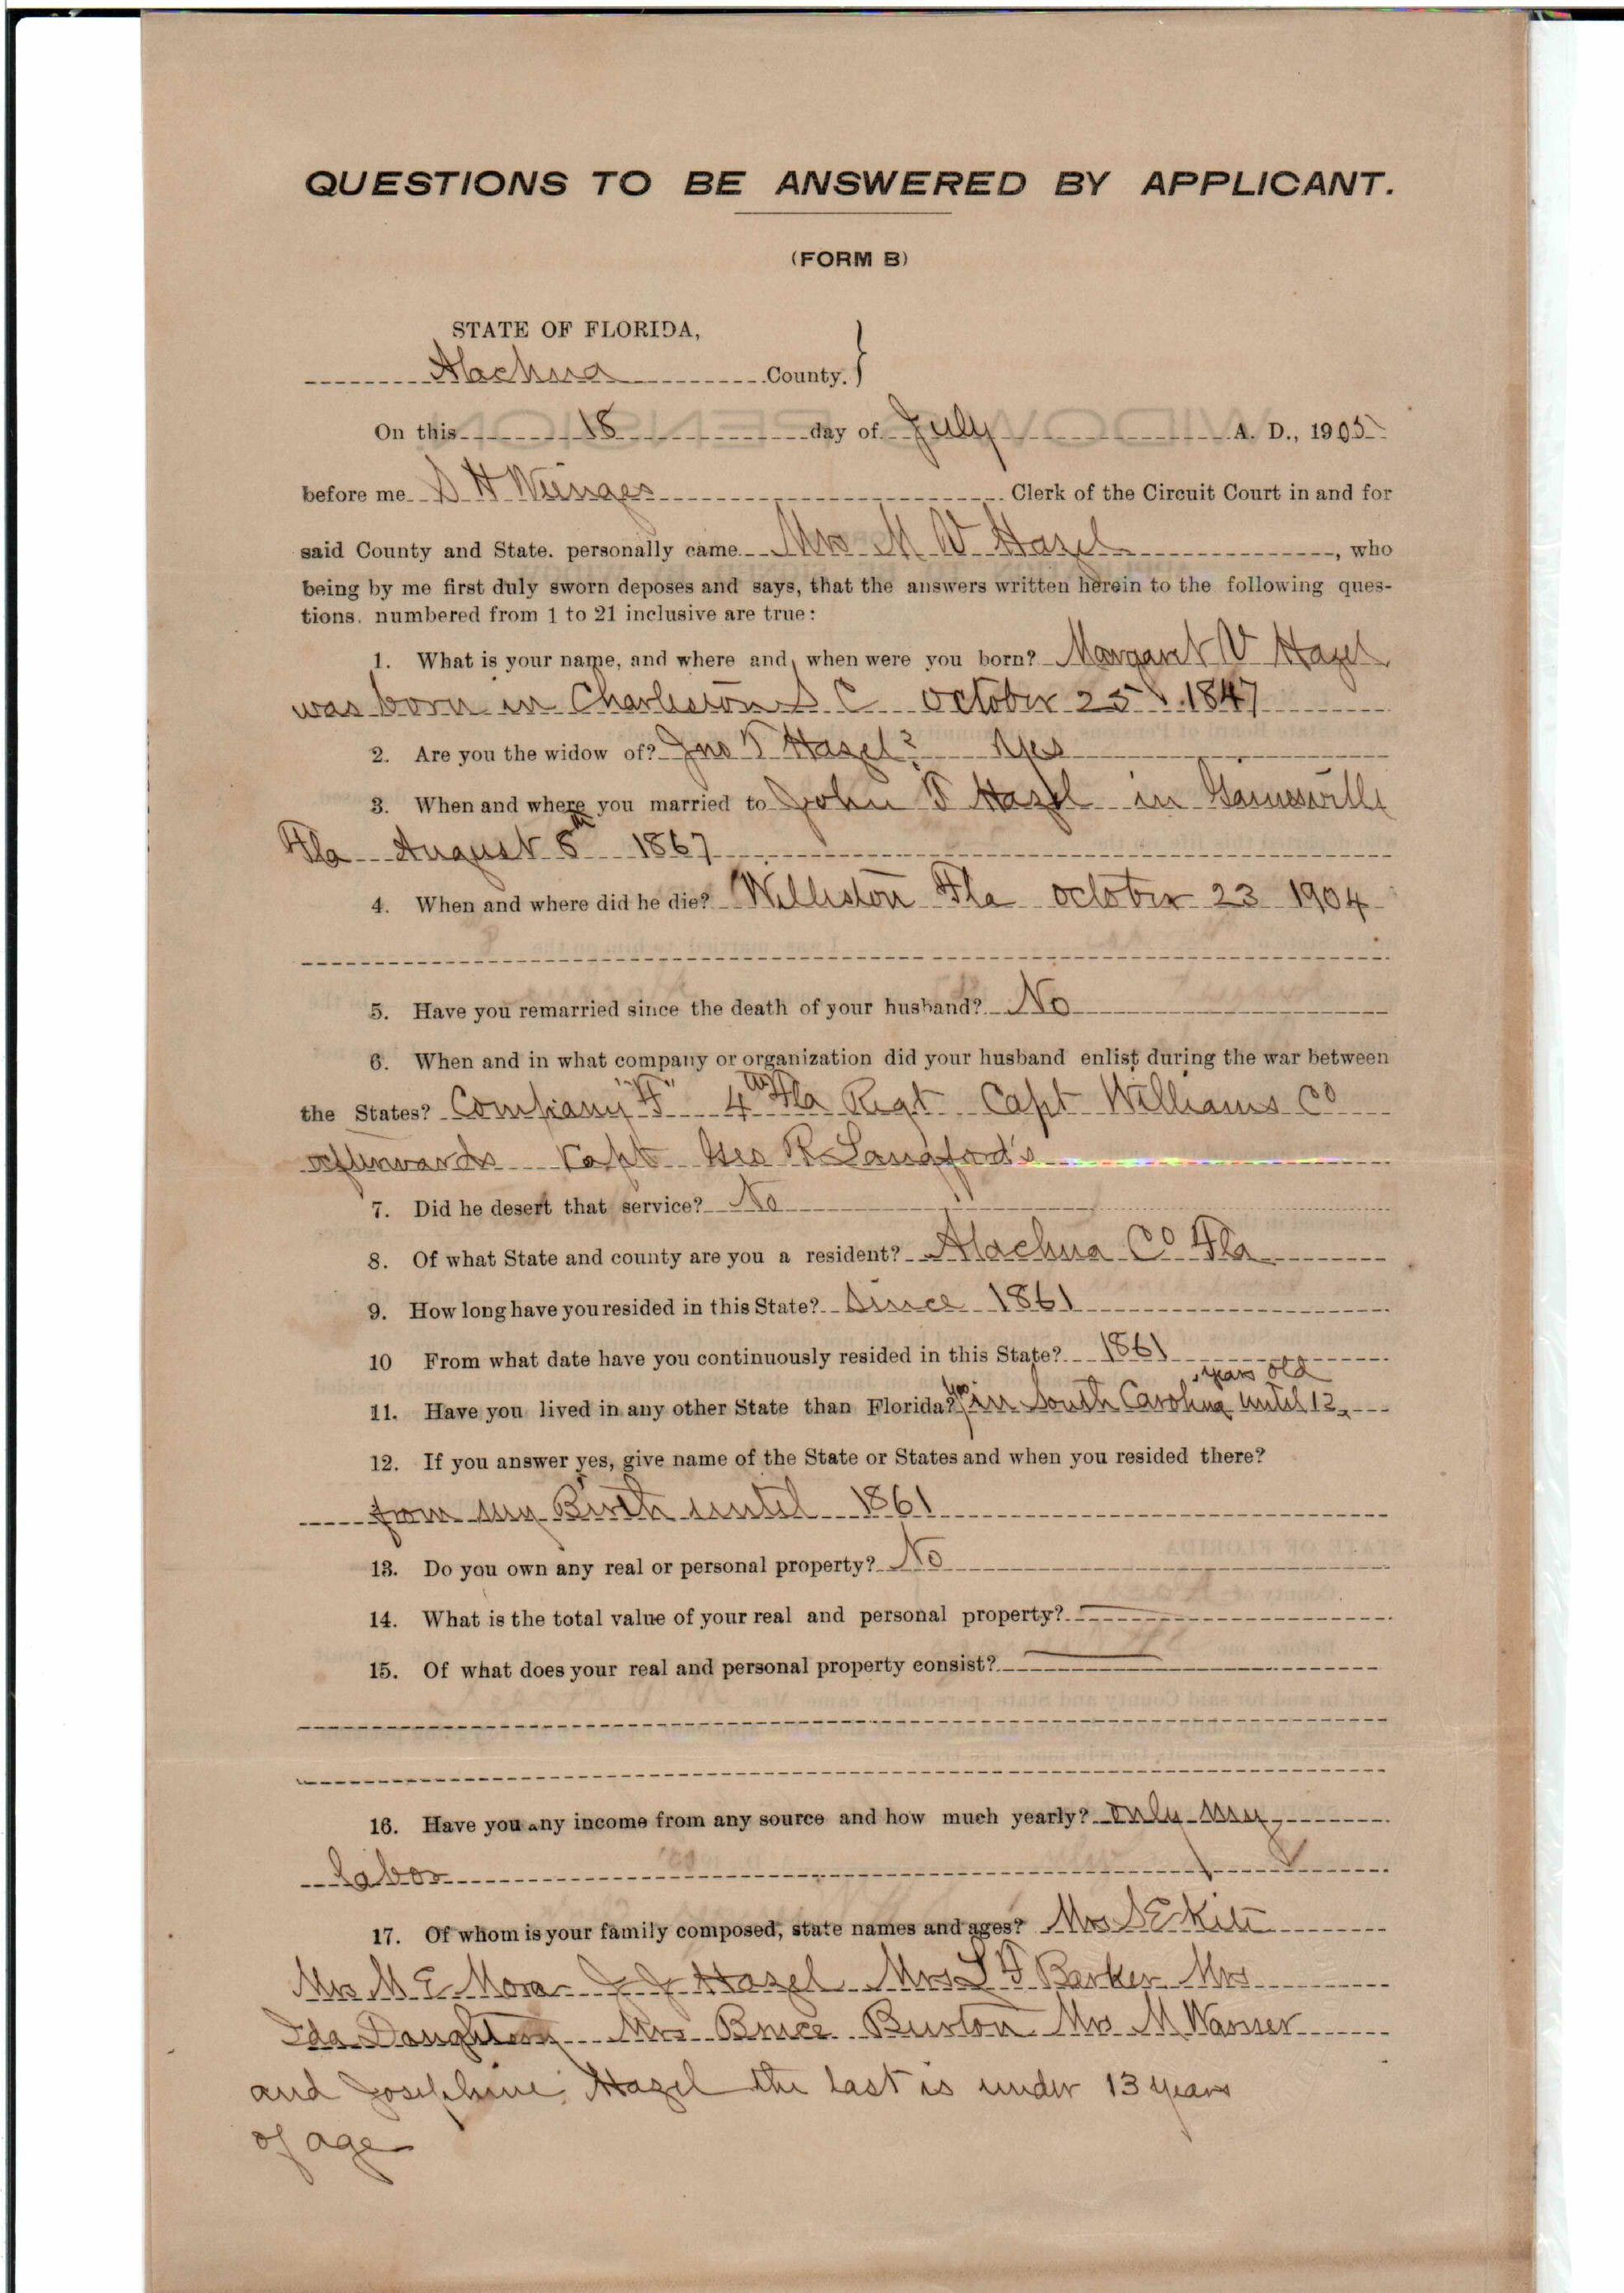 QUESTIONS TO BE ANSWERED BY APPLICANT.
(FORM B)
STATE OF FLORIDA,
Alachua County. }
On this 18 day of July A. D., 1905
before me S H Wienges Clerk of the Circuit Court in and for
said County and State. personally came Mrs M V Hazel, who
being by me first duly sworn deposes and says, that the answers written herein to the following ques-
tions. numbered from 1 to 21 inclusive are true:
1. What is your name, and where and when were you born? Margaret V Hazel
was born in Charleston S C October 25 1847
2. Are you the widow of? Jno T Hazel? Yes
3. When and where you married to John T Hazel in Gainesville
Fla August 8th 1867
4. When and where did he die? Williston Fla October 23 1904
5. Have you remarried since the death of your husband? No
6. When and in what company or organization did your husband enlist during the war between
the States? Company "F" 4th Fla Regt Capt Williams Co
afterwards Capt Geo R Langford's
7. Did he desert that service? No
8. Of what State and county are you a resident? Alachua Co Fla
9. How long have you resided in this State? Since 1861
10 From what date have you continuously resided in this State? 1861
11. Have you lived in any other State than Florida? yes in South Carolina until 12 years old
12. If you answer yes, give name of the State or States and when you resided there?
from my Birth until 1861
13. Do you own any real or personal property? No
14. What is the total value of your real and personal property?
15. Of what does your real and personal property consist?
16. Have you any income from any source and how much yearly? Only my
labor
17. Of whom is your family composed, state names and ages? Mrs S E Kite
Mrs M E Mora J J Hazel Mrs L F Barker Mrs
Ida Daughtery Mrs Bruce Burton Mrs M Warner
and Josephine Hazel the last is under 13 years
of age